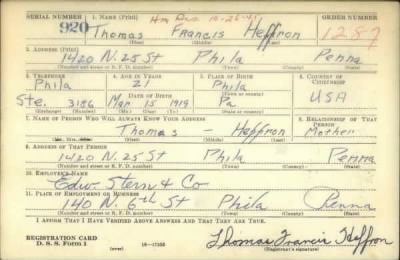 SERIAL NUMBER 1. NAME (Print) Hm Dec. 10-25-41 ORDER NUMBER
920 Thomas Francis Heffron 1287
(First) (Middle) (Last)
2. ADDRESS (Print)
1420 N. 25 St Phila Penna
(Number and street or R. F. D. number) (Town) (County) (State)
3. TELEPHONE 4. AGE IN YEARS 5. PLACE OF BIRTH 6. COUNTRY OF CITIZENSHIP
Phila 21 Phila
(Town or county)
DATE OF BIRTH
Ste. 3186 Mar 15 1919 Pa USA
(Exchange) (Number) (Mo.) (Day) (Yr.) (State or country)
7. NAME OF PERSON WHO WILL ALWAYS KNOW YOUR ADDRESS 8. RELATIONSHIP OF THAT PERSON
Thomas - Heffron Mother
(First) (Middle) (Last)
9. ADDRESS OF THAT PERSON
1420 N. 25 St Phila Penna
(Number and street or R. F. D. number) (Town) (County) (State)
10. EMPLOYER'S NAME
Edw. Stern & Co
11. PLACE OF EMPLOYMENT OR BUSINESS
140 N. 6th St Phila Penna
(Number and street or R. F. D. number) (Town) (County) (State)
I AFFIRM THAT I HAVE VERIFIED ABOVE ANSWERS AND THAT THEY ARE TRUE.
REGISTRATION CARD
D. S. S. Form 1 (over) 16-17105 Thomas Francis Heffron
(Registrant's signature)